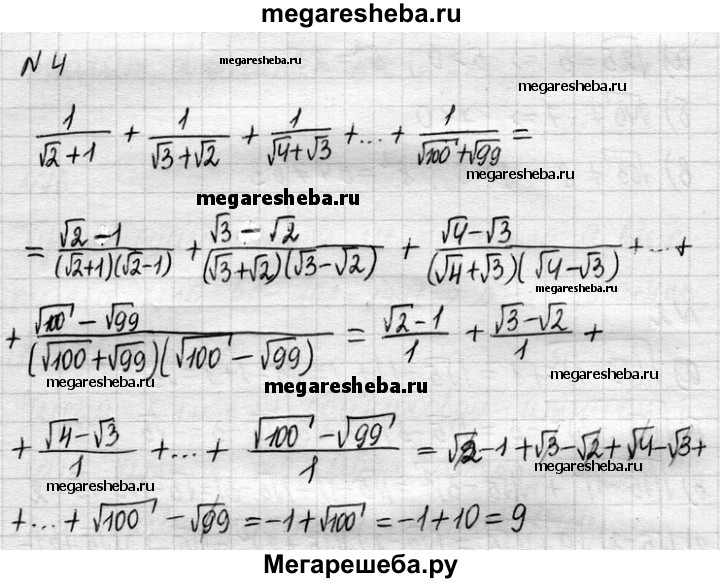 megaresheba.ru
N 4
megaresheba.ru
megaresheba.ru
1/(√2+1) + 1/(√3+√2) + 1/(√4+√3) +...+ 1/(√100+√99) =
megaresheba.ru
megaresheba.ru
= (√2-1)/((√2+1)(√2-1)) + (√3-√2)/((√3+√2)(√3-√2)) + (√4-√3)/((√4+√3)(√4-√3)) +...+
megaresheba.ru
megaresheba.ru
+ (√100-√99)/((√100+√99)(√100-√99)) = (√2-1)/1 + (√3-√2)/1 +
megaresheba.ru
megaresheba.ru
megaresheba.ru
+ (√4-√3)/1 +...+ (√100-√99)/1 = √2-1+√3-√2+√4-√3+
megaresheba.ru
megaresheba.ru
+...+ √100 - √99 = -1+√100 = -1+10 = 9
Мегарешеба.ру